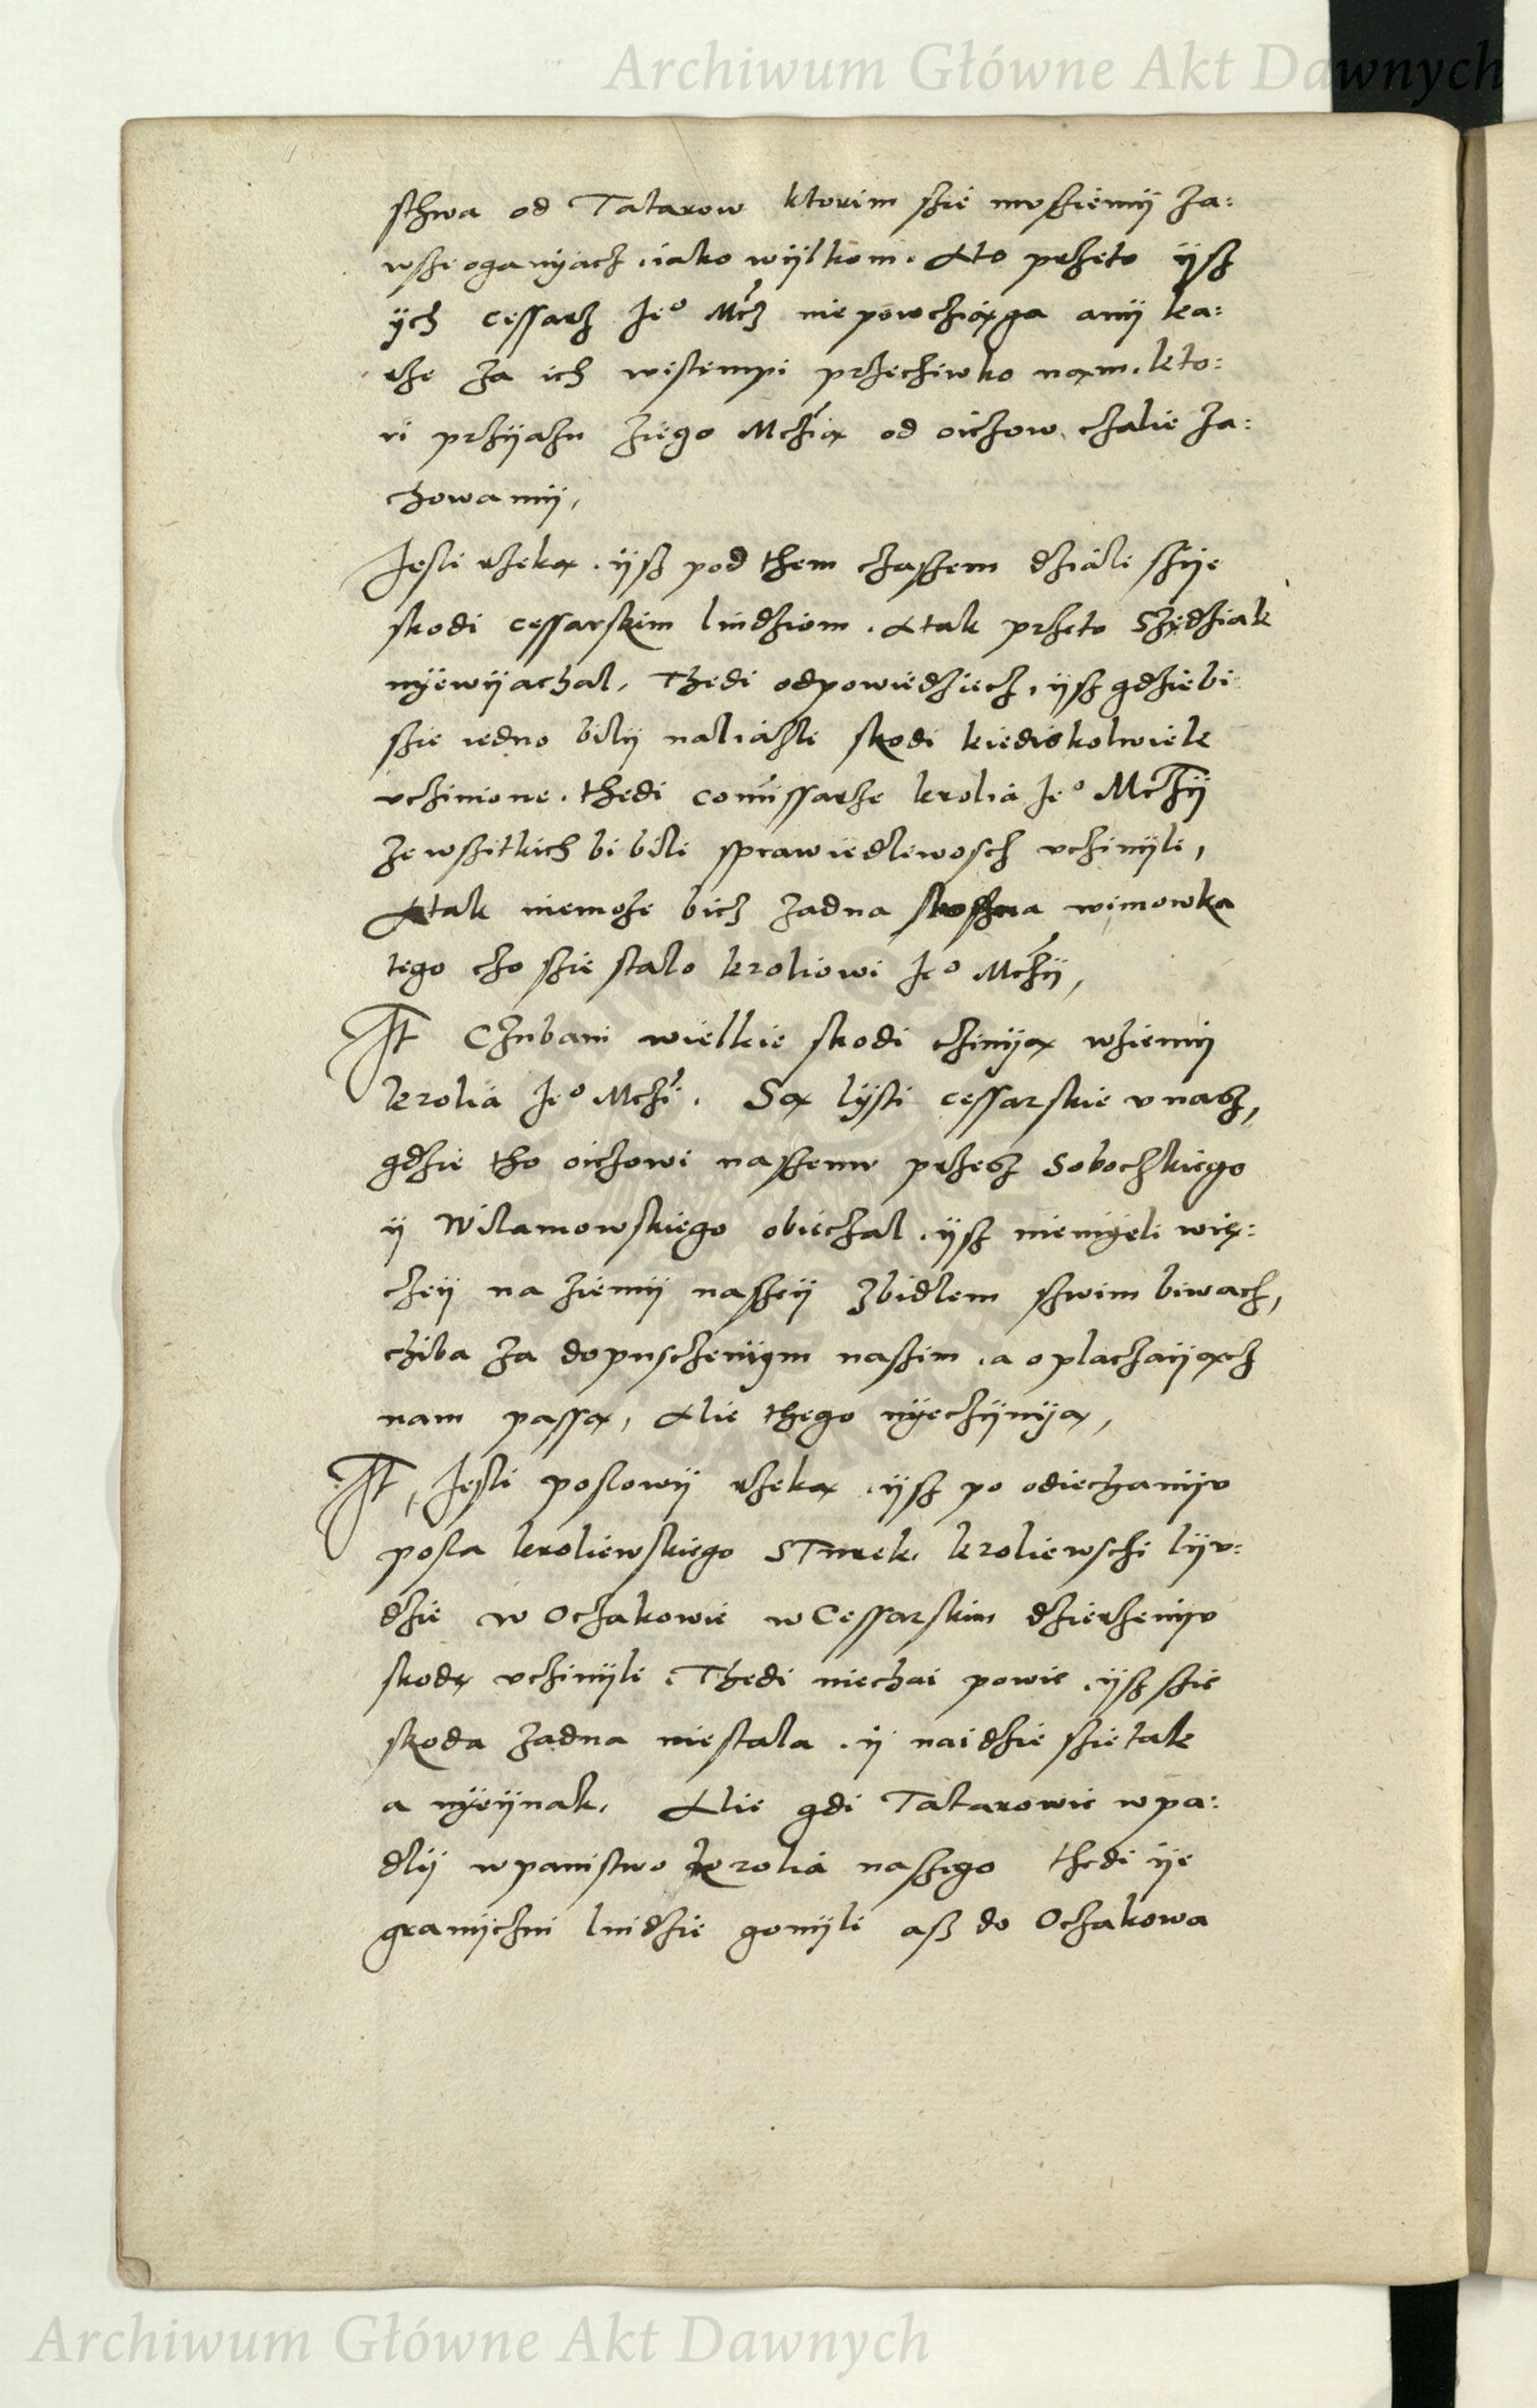 Archiwum Główne Akt Dawnych
sthwa od Tatarow ktorim szie mvsziemÿ za:
wsze oganÿacz, iako wÿlkom. Ato przeto ÿsz
ÿch cessarz Je° Mcz nie powcziąga anÿ ka:
rze za ich wistempi przechiwko nam, kto:
ri przÿazn Ziego Mczią od oiczow czalie za:
chowamÿ,
Jesli rzeką, ÿsz pod them czaszem dziali szÿe
skodi cessarskim liudziom. Atak przeto Szędziak
nÿewÿachal, Thedi odpowiedziecz, ÿsz gdziebi
szie iedno bilÿ naliazli skodi kiediskolwiek
vchinione, thedi comissarze krolia Je° Mczÿ
ze wszitkich bi bili sprawiedlewosch vchinÿli,
Atak niemoze bicz zadna wimowka
tego czo szie stalo kroliowi Je° Mczÿ,
It Czubani wielkie skodi czinÿą wziemÿ
krolia Je° Mczi. Są lÿsti cessarskie v nasz,
gdzie tho oiczowi naszemv przesz Soboczkiego
ÿ Wilamowskiego obieczal, ÿsz niemÿeli wię:
czeÿ na ziemÿ naszeÿ zbidlem szwim biwach,
chiba za dopusczenÿm naszim, a oplaczaÿącz
nam passą, Alie thego nÿeczÿnÿą,
It, Jesli poslowÿ rzeką, ÿsz po odiechanÿv
posla kroliewskiego STurek, kroliewschi lÿv:
dzie w Oczakowie w Cessarskim dzierzenÿv
skodę vchinÿli, Thedi niechai powie, ÿsz szie
skoda zadna niestala, ÿ naidzie szie tak
a nÿeÿnak, Alie gdi Tatarowie wpa:
dlÿ wpanistwo krolia naszego thedi ÿe
granÿczni liudzie gonÿli asz do Oczakowa
Archiwum Główne Akt Dawnych